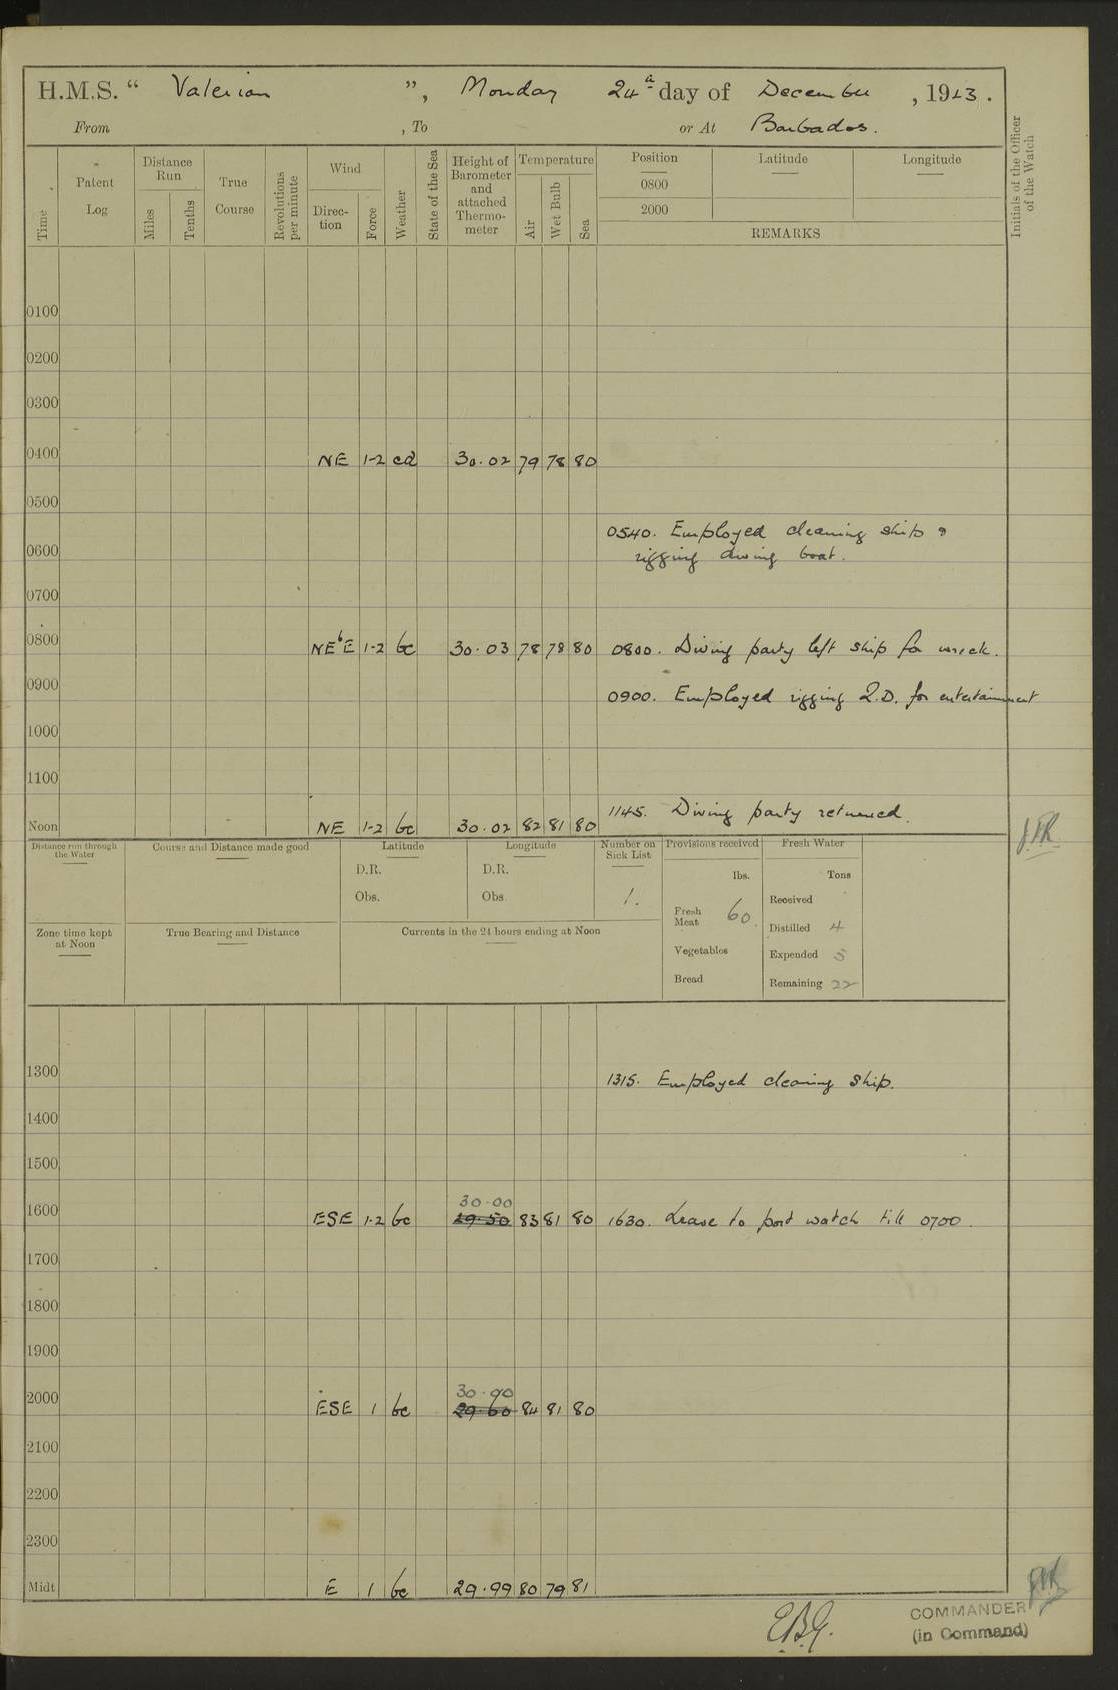 H.M.S. “ Valerian ”, Monday 24th day of December, 1923.
From , To or At Barbados.
Time
Patent Log
Distance Run
Miles
Tenths
True Course
Revolutions per minute
Wind
Direc-tion
Force
Weather
State of the Sea
Height of Barometer and attached Thermo-meter
Temperature
Air
Wet Bulb
Sea
Position
0800
2000
Latitude
Longitude
REMARKS
Initials of the Officer of the Watch
0100
0200
0300
0400 NE 1-2 cd 30.02 79 78 80
0500
0540. Employed cleaning ship &
0600 rigging diving boat.
0700
0800 NE b E 1-2 bc 30.03 78 78 80 0800. Diving party left ship for wreck.
0900 0900. Employed rigging Q.D. for entertainment
1000
1100
1145. Diving party returned.
Noon NE 1-2 bc 30.02 82 81 80
Distance run through the Water
Course and Distance made good
Latitude
D.R.
Obs.
Longitude
D.R.
Obs
Number on Sick List
1.
Provisions received
lbs.
Fresh Meat 60
Vegetables
Bread
Fresh Water
Tons
Received
Distilled 4
Expended 5
Remaining 22
Zone time kept at Noon
True Bearing and Distance
Currents in the 24 hours ending at Noon
1300 1315. Employed cleaning ship.
1400
1500
30.00
1600 ESE 1-2 bc 29.50 83 81 80 1630. Leave to port watch till 0700.
1700
1800
1900
30.90
2000 ESE 1 bc 29.60 84 81 80
2100
2200
2300
Midt E 1 bc 29.99 80 79 81
E.B.G.
COMMANDER
(in Command)